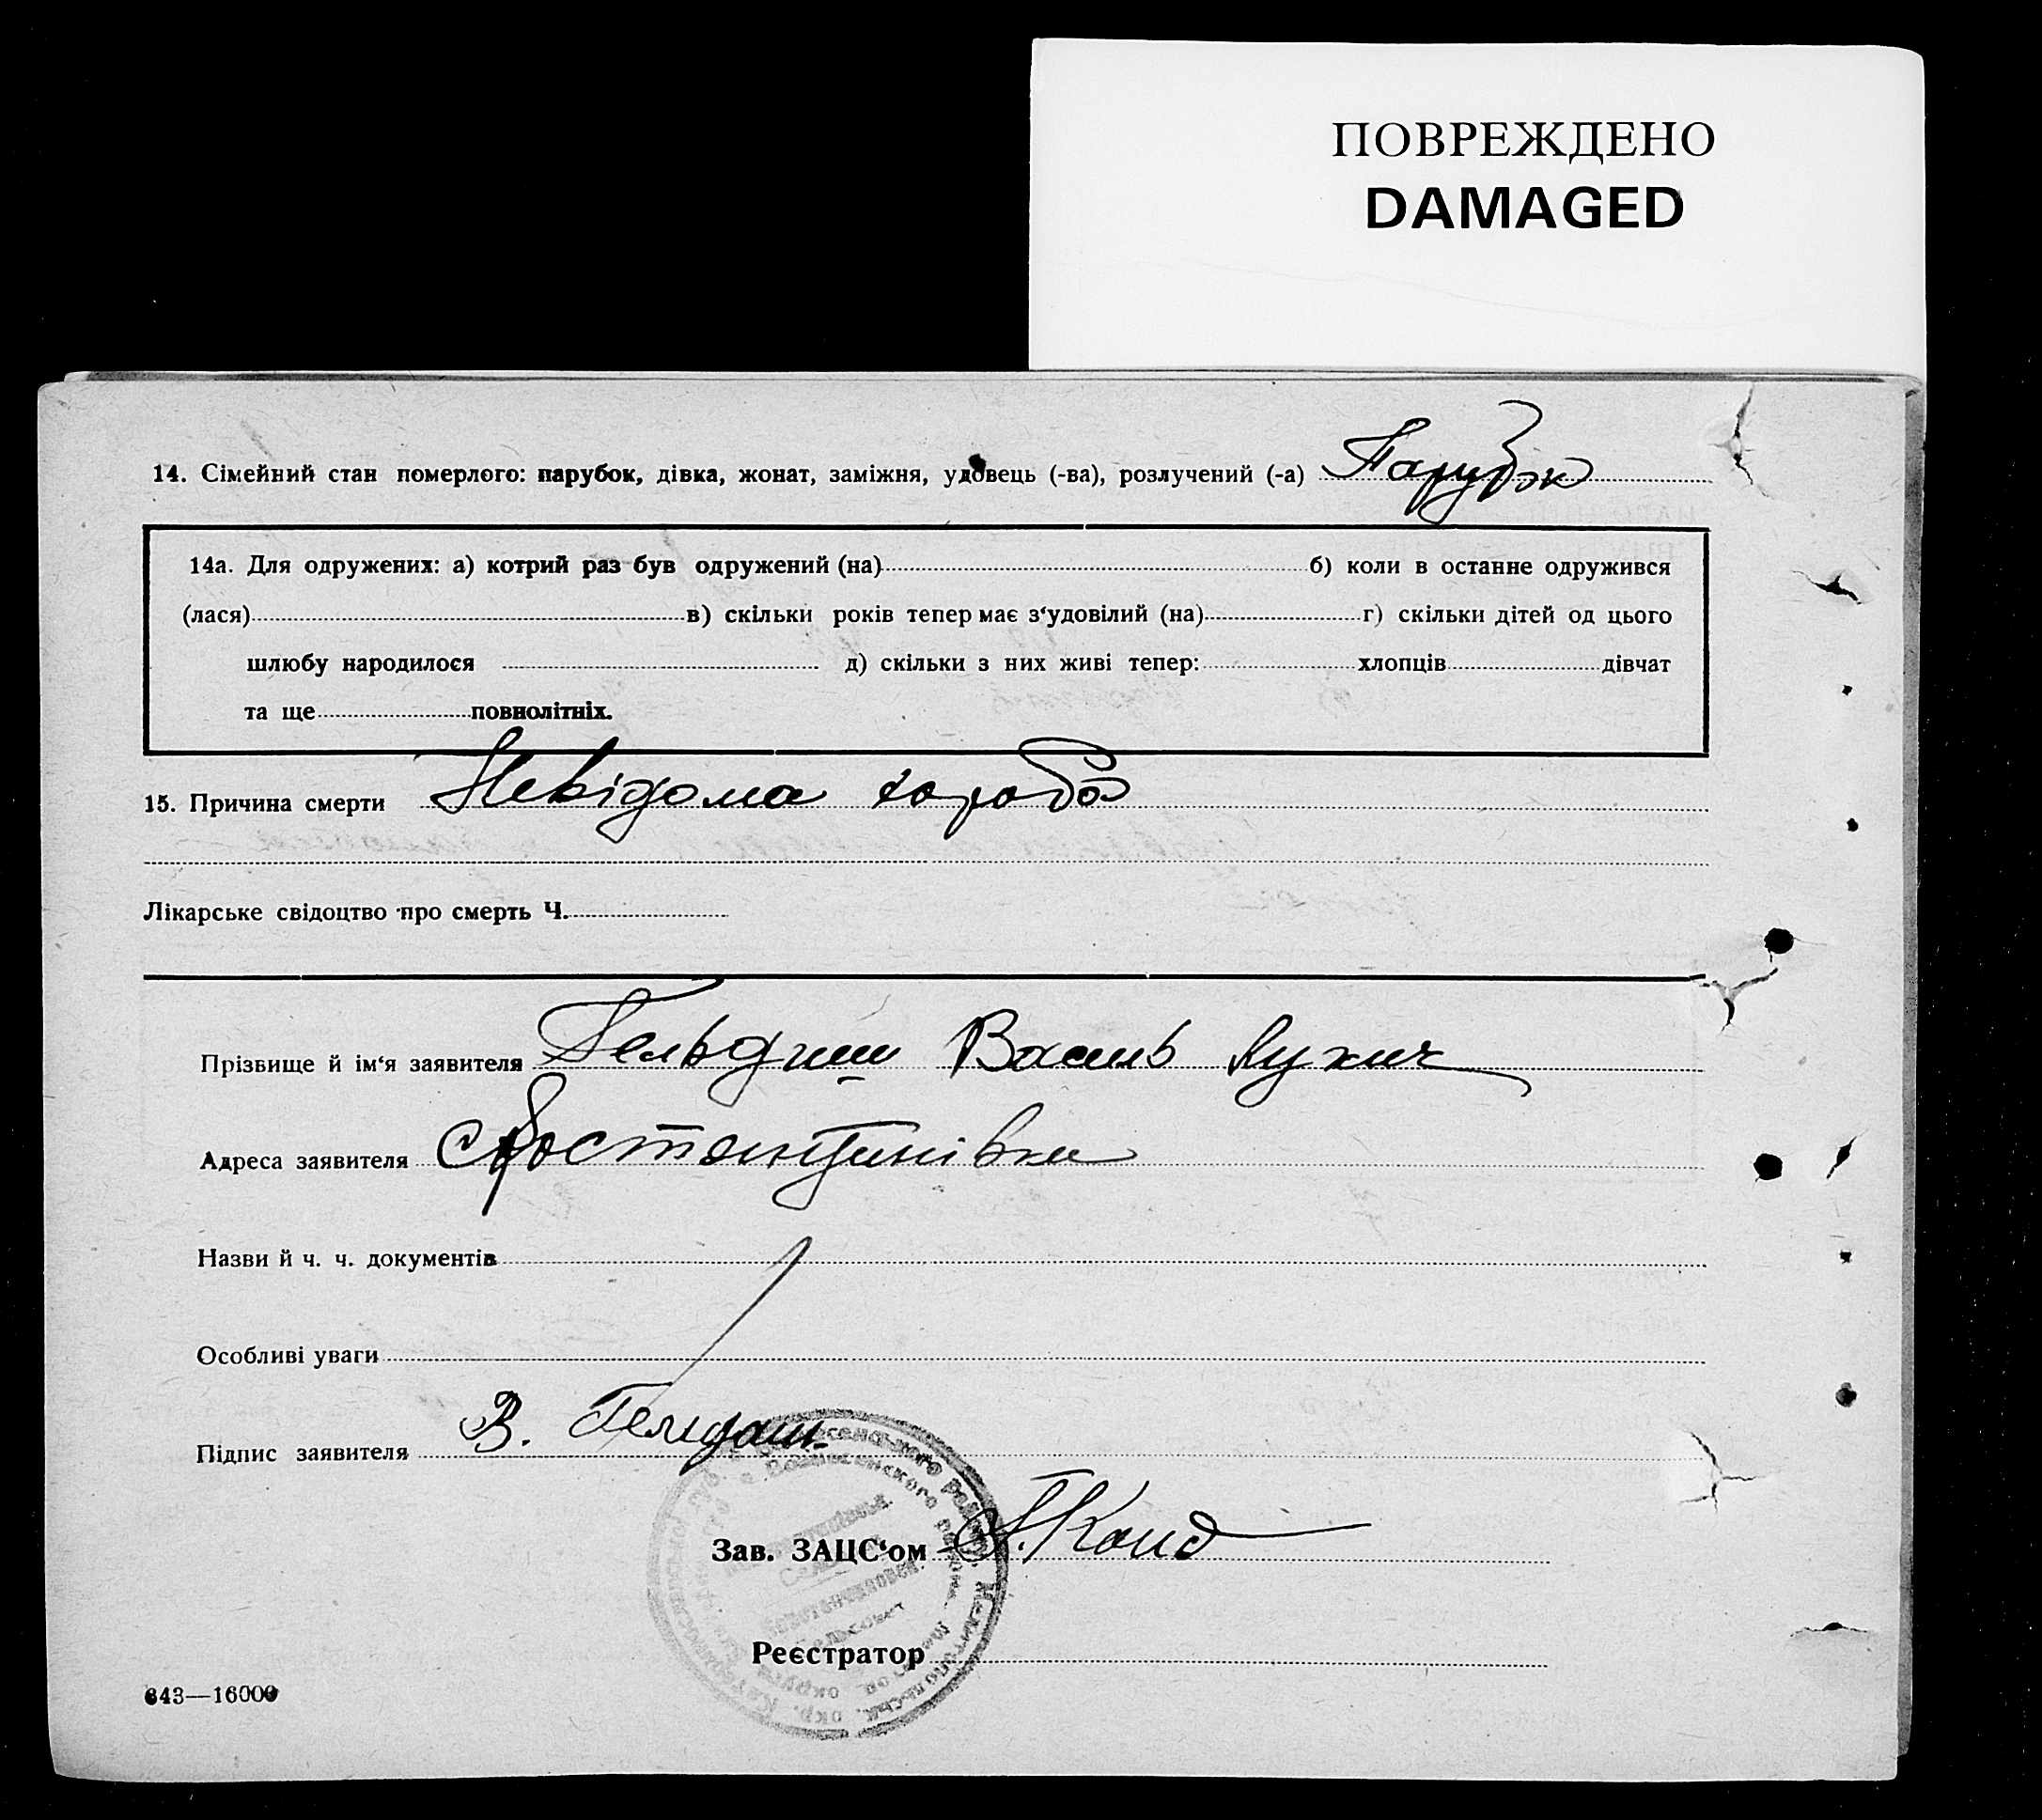 ПОВРЕЖДЕНО
DAMAGED
14. Сімейний стан померлого: парубок, дівка, жонат, заміжня, удовець (-ва), розлучений (-а) Парубок
14а. Для одружених: а) котрий раз був одружений (на) б) коли в останнє одружився
(лася) в) скільки років тепер має з‘удовілий (на) г) скільки дітей од цього
шлюбу народилося д) скільки з них живі тепер: хлопців дівчат
та ще повнолітніх.
15. Причина смерти Невідома хороба
Лікарське свідоцтво про смерть Ч.
Прізвище й ім‘я заявителя Гельдиш Василь Лукич
Адреса заявителя с Костянтинівка
Назви й ч. ч. документів
Особливі уваги
Підпис заявителя В. Гелдаш
Зав. ЗАЦС‘ом
Реєстратор
643—16000